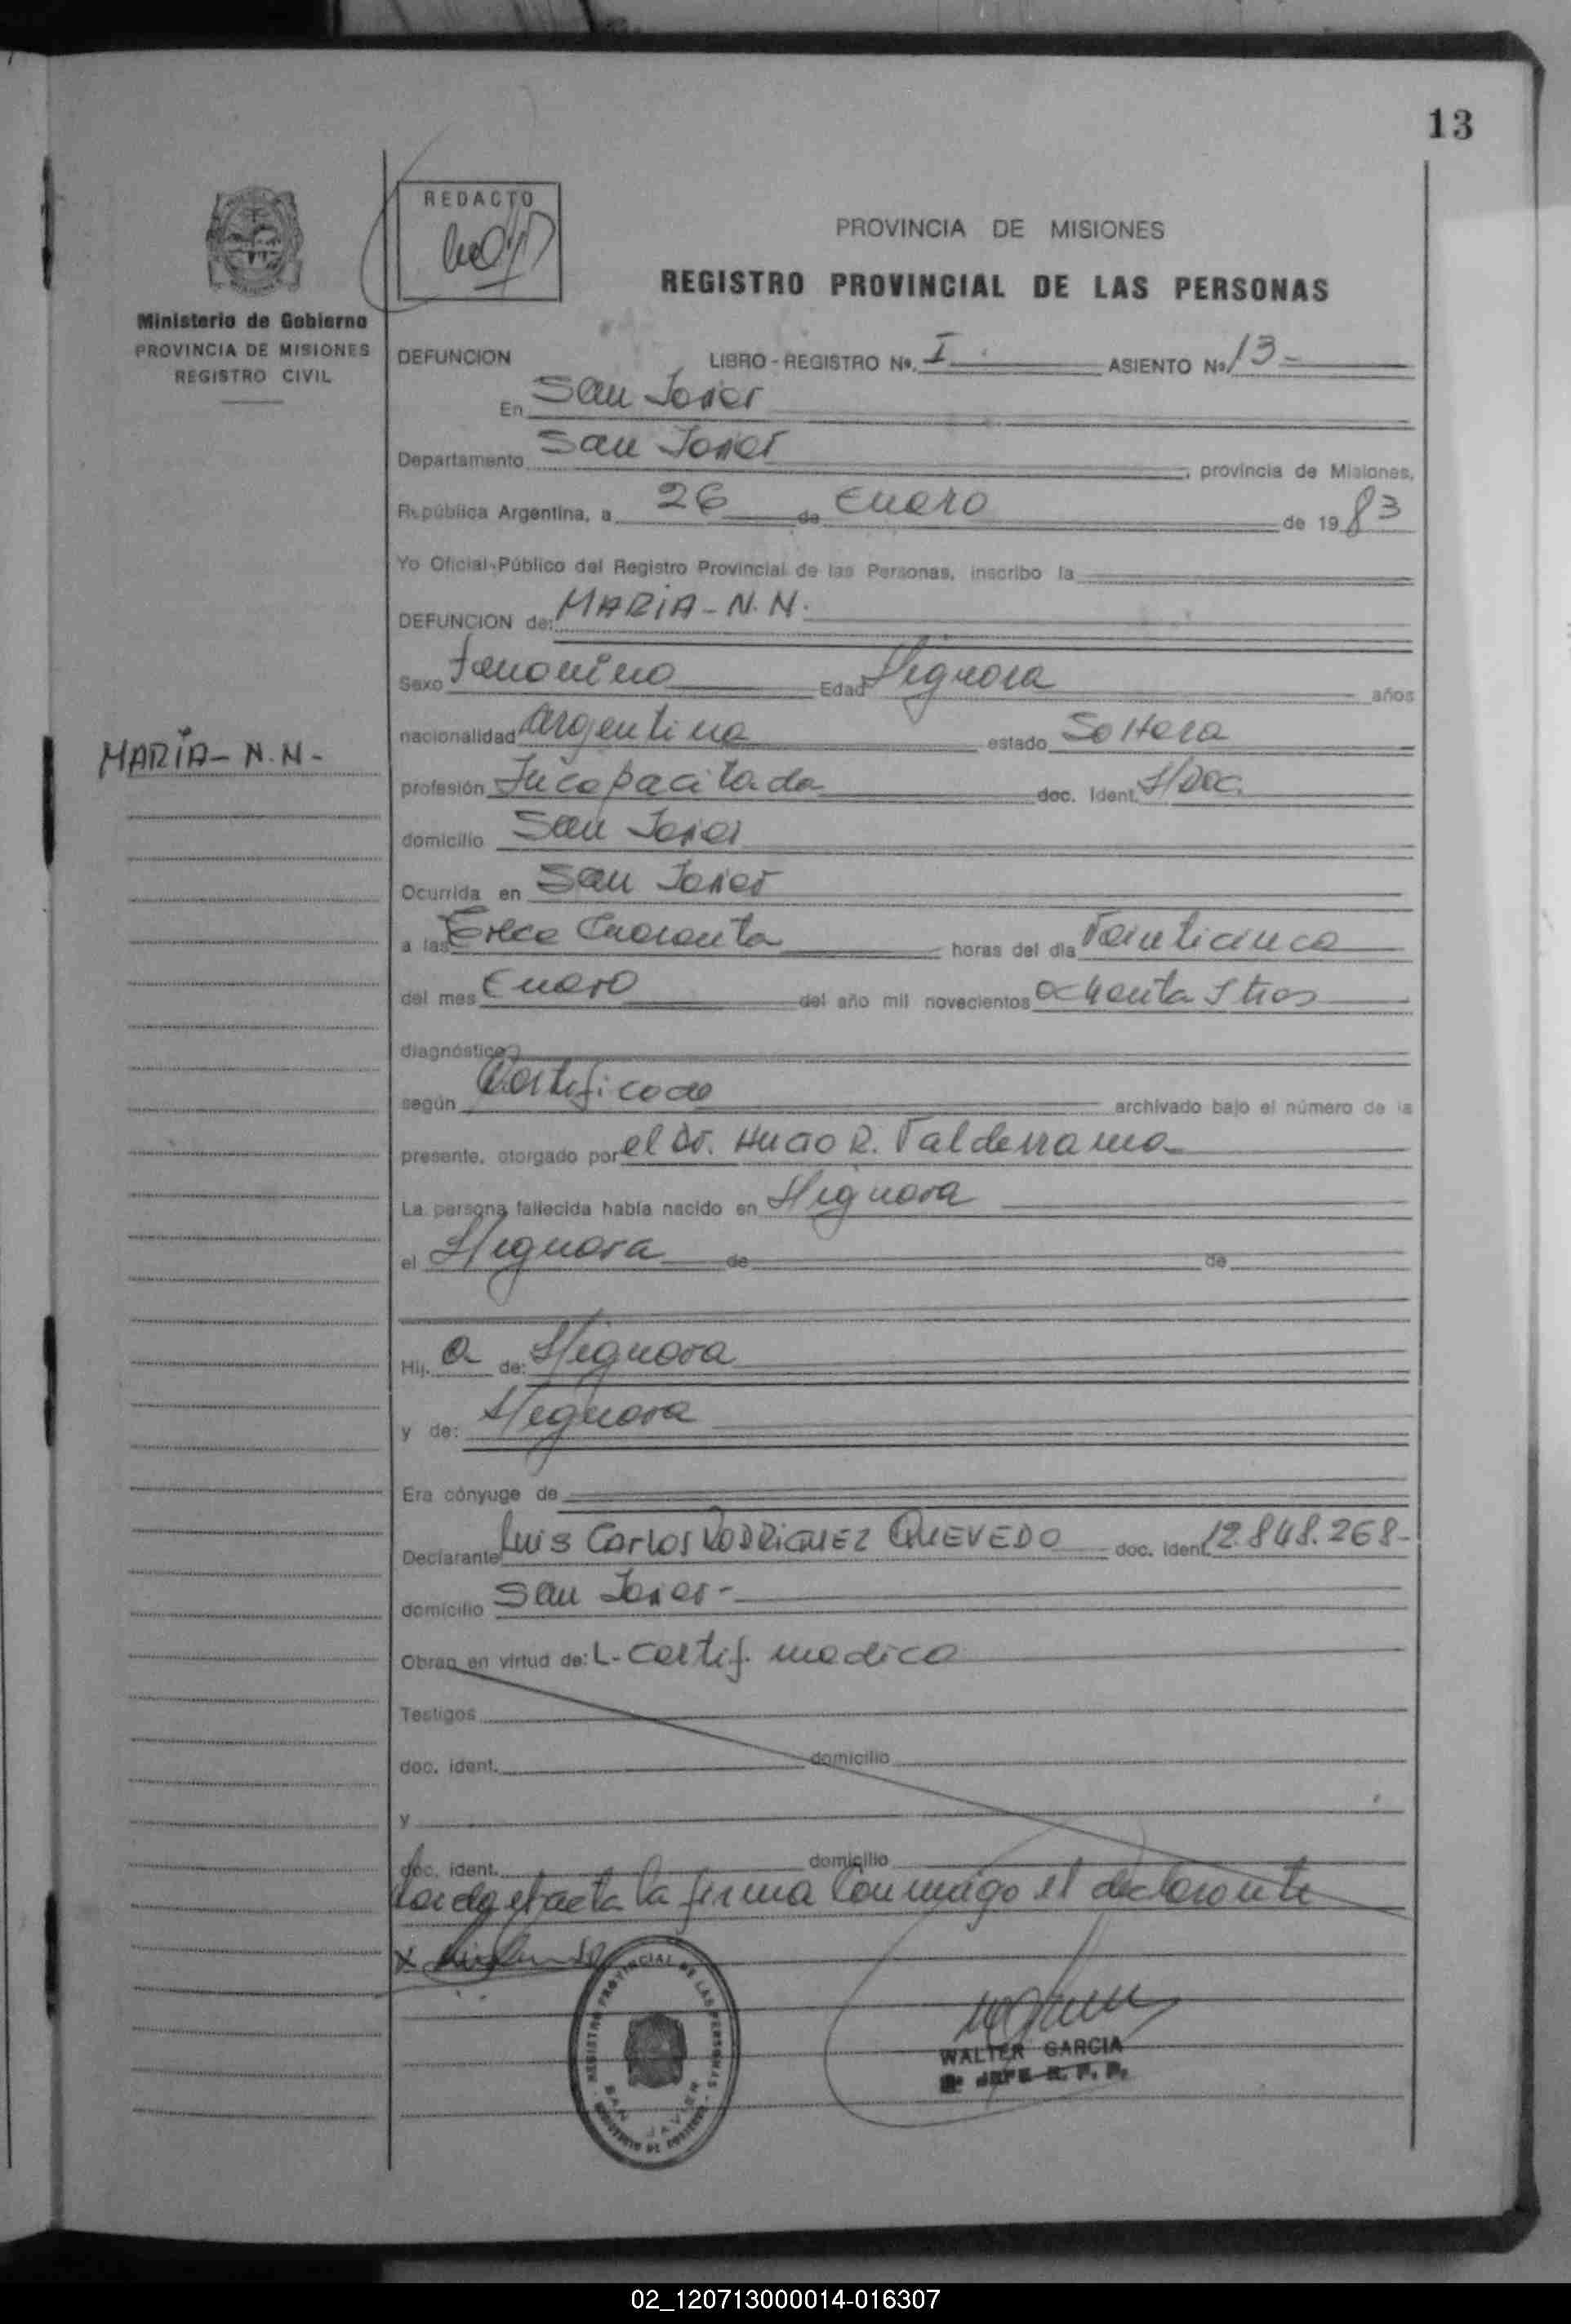 13
REDACTO
PROVINCIA DE MISIONES
REGISTRO PROVINCIAL DE LAS PERSONAS
Ministerio de Gobierno
PROVINCIA DE MISIONES
REGISTRO CIVIL
DEFUNCION LIBRO - REGISTRO No. I ASIENTO No. 13-
En San Javier
Departamento San Javier, provincia de Misiones,
República Argentina, a 26 de Enero de 1983
Yo Oficial Público del Registro Provincial de las Personas, inscribo la
DEFUNCION de: MARIA - N. N.
Sexo Femenino Edad S/ignora años
nacionalidad Argentina estado Soltera
MARÍA - N. N. -
profesión Incapacitada doc. Ident. S/Doc.
domicilio San Javier
Ocurrida en San Javier
a las Trece Cuarenta horas del día Veinticinco
del mes Enero del año mil novecientos ochenta y tres
diagnóstico
según Certificado archivado bajo el número de la
presente, otorgado por el Dr. Hugo R. Valderrama
La persona fallecida había nacido en S/ignora
el S/ignora de de
Hij. a de: S/ignora
y de: S/ignora
Era cónyuge de
Declarante Luis Carlos RODRIGUEZ QUEVEDO doc. ident. 12.848.268-
domicilio San Javier-
Obran en virtud de: L- Certif. medico
Testigos
doc. ident. domicilio
y
doc. ident. domicilio
Leida el acta la firma Conmigo el declarante
x
REGISTRO PROVINCIAL DE LAS PERSONAS
SAN JAVIER
MINISTERIO DE GOBIERNO
WALTER GARCIA
JEFE R. P. P.
02_120713000014-016307